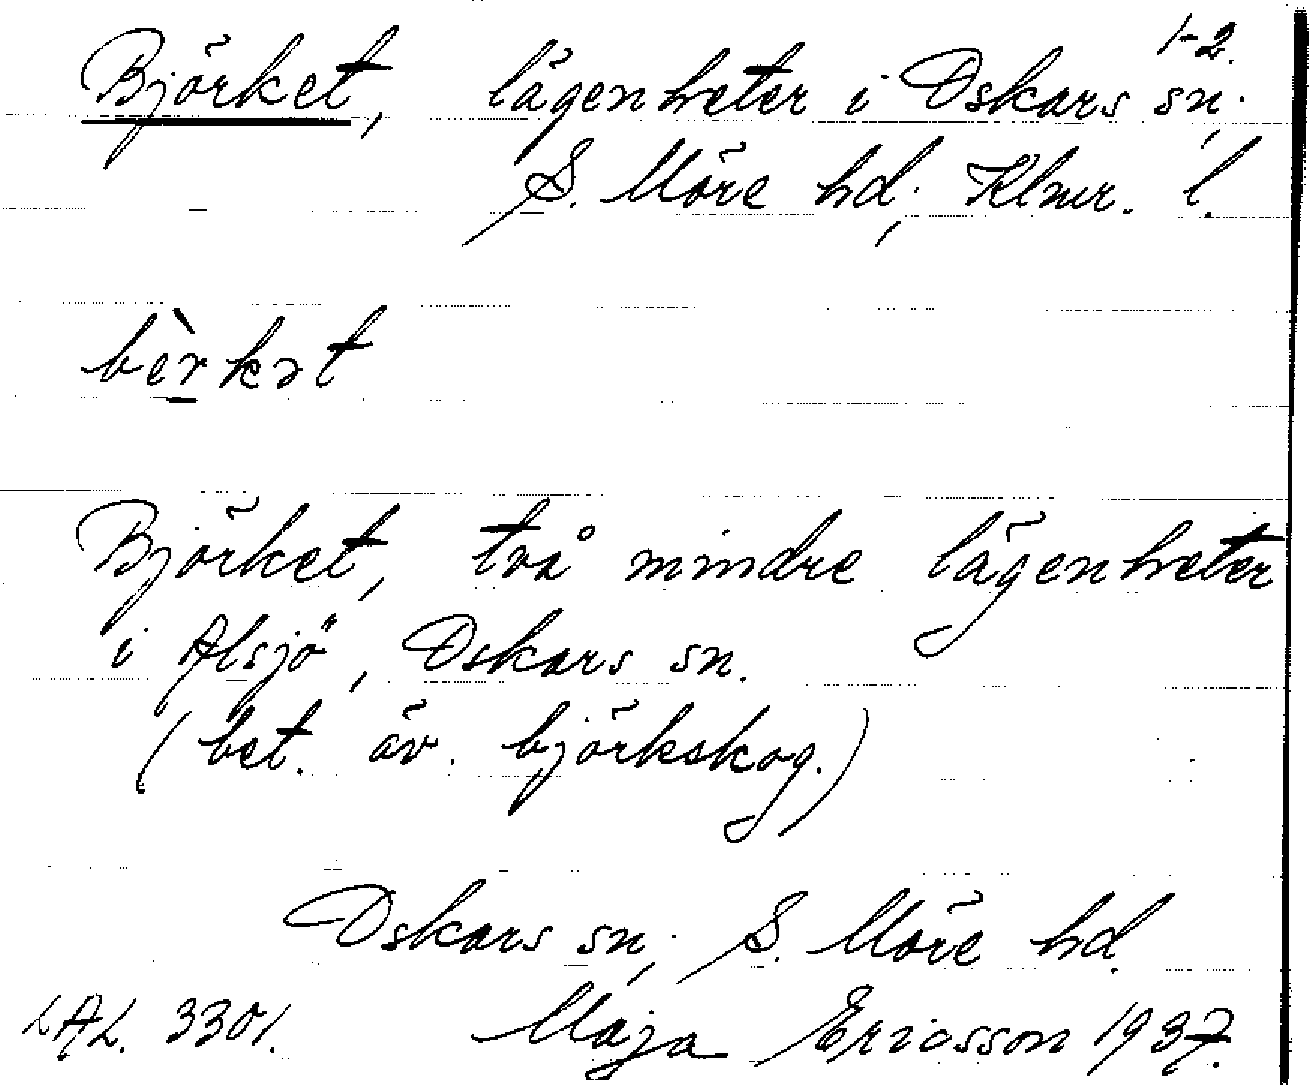 1-2.
Björket, lägenheter i Oskars sn.,
S. Möre hd., Klmr. l.
bèrkət
Björket, två mindre lägenheter
i Alsjö, Oskars sn.
(bet. äv. björkskog.)
Oskars sn., S. Möre hd.
LAL. 3301. Maja Ericsson 1937.